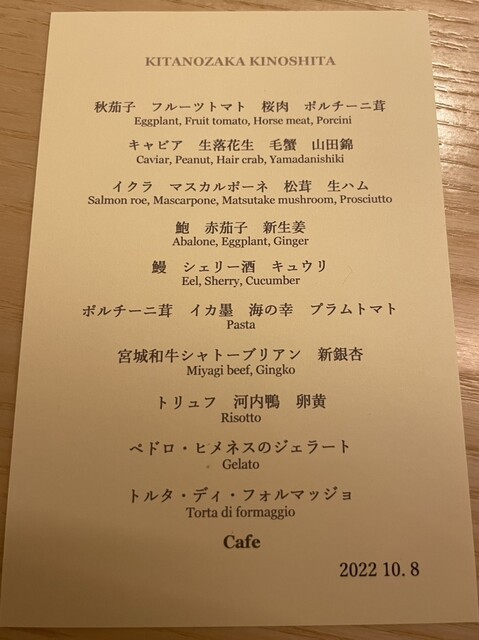 KITANOZAKA KINOSHITA
秋茄子　フルーツトマト　桜肉　ポルチーニ茸
Eggplant, Fruit tomato, Horse meat, Porcini
キャビア　生落花生　毛蟹　山田錦
Caviar, Peanut, Hair crab, Yamadanishiki
イクラ　マスカルポーネ　松茸　生ハム
Salmon roe, Mascarpone, Matsutake mushroom, Prosciutto
鮑　赤茄子　新生姜
Abalone, Eggplant, Ginger
鰻　シェリー酒　キュウリ
Eel, Sherry, Cucumber
ポルチーニ茸　イカ墨　海の幸　プラムトマト
Pasta
宮城和牛シャトーブリアン　新銀杏
Miyagi beef, Gingko
トリュフ　河内鴨　卵黄
Risotto
ペドロ・ヒメネスのジェラート
Gelato
トルタ・ディ・フォルマッジョ
Torta di formaggio
Cafe
2022 10. 8